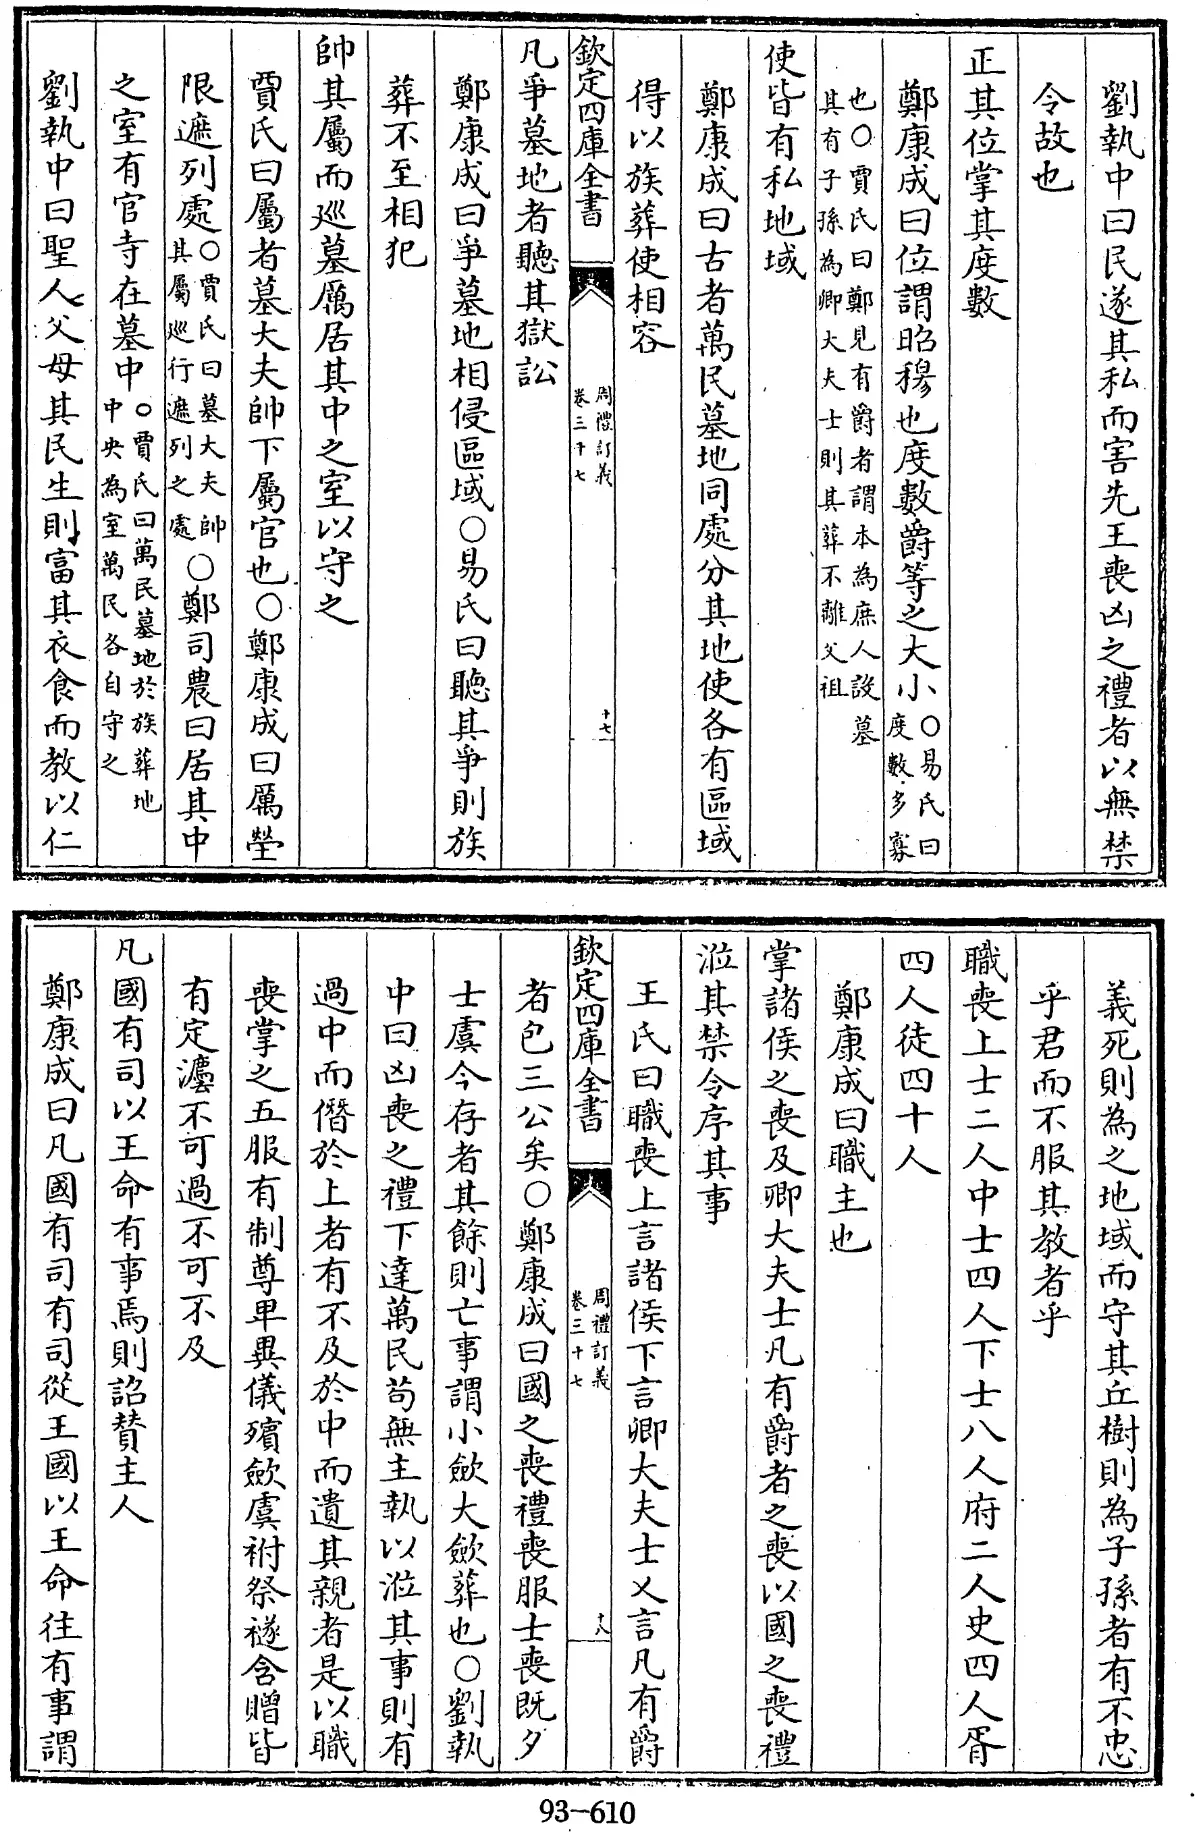 劉執中曰民遂其私而害先王喪凶之禮者以無禁
令故也
正其位掌其度數
鄭康成曰位謂昭穆也度數爵等之大小○易氏曰
度數多寡
也○賈氏曰鄭見有爵者謂本為庶人設墓
其有子孫為卿大夫士則其葬不離父祖
使皆有私地域
鄭康成曰古者萬民墓地同處分其地使各有區域
得以族葬使相容
欽定四庫全書
周禮訂義
卷三十七
十七
凡爭墓地者聽其獄訟
鄭康成曰爭墓地相侵區域○易氏曰聽其爭則族
葬不至相犯
帥其屬而廵墓厲居其中之室以守之
賈氏曰屬者墓大夫帥下屬官也○鄭康成曰厲塋
限遮列處○賈氏曰墓大夫帥
其屬廵行遮列之處
○鄭司農曰居其中
之室有官寺在墓中○賈氏曰萬民墓地於族葬地
中央為室萬民各自守之
劉執中曰聖人父母其民生則富其衣食而教以仁
義死則為之地域而守其丘樹則為子孫者有不忠
乎君而不服其教者乎
職喪上士二人中士四人下士八人府二人史四人胥
四人徒四十人
鄭康成曰職主也
掌諸侯之喪及卿大夫士凡有爵者之喪以國之喪禮
涖其禁令序其事
王氏曰職喪上言諸侯下言卿大夫士乂言凡有爵
欽定四庫全書
周禮訂義
卷三十七
十八
者包三公矣○鄭康成曰國之喪禮喪服士喪既夕
士虞今存者其餘則亡事謂小斂大斂葬也○劉執
中曰凶喪之禮下達萬民苟無主執以涖其事則有
過中而僭於上者有不及於中而遺其親者是以職
喪掌之五服有制尊卑異儀殯斂虞祔祭襚含贈皆
有定灋不可過不可不及
凡國有司以王命有事焉則詔贊主人
鄭康成曰凡國有司有司從王國以王命往有事謂
93-610